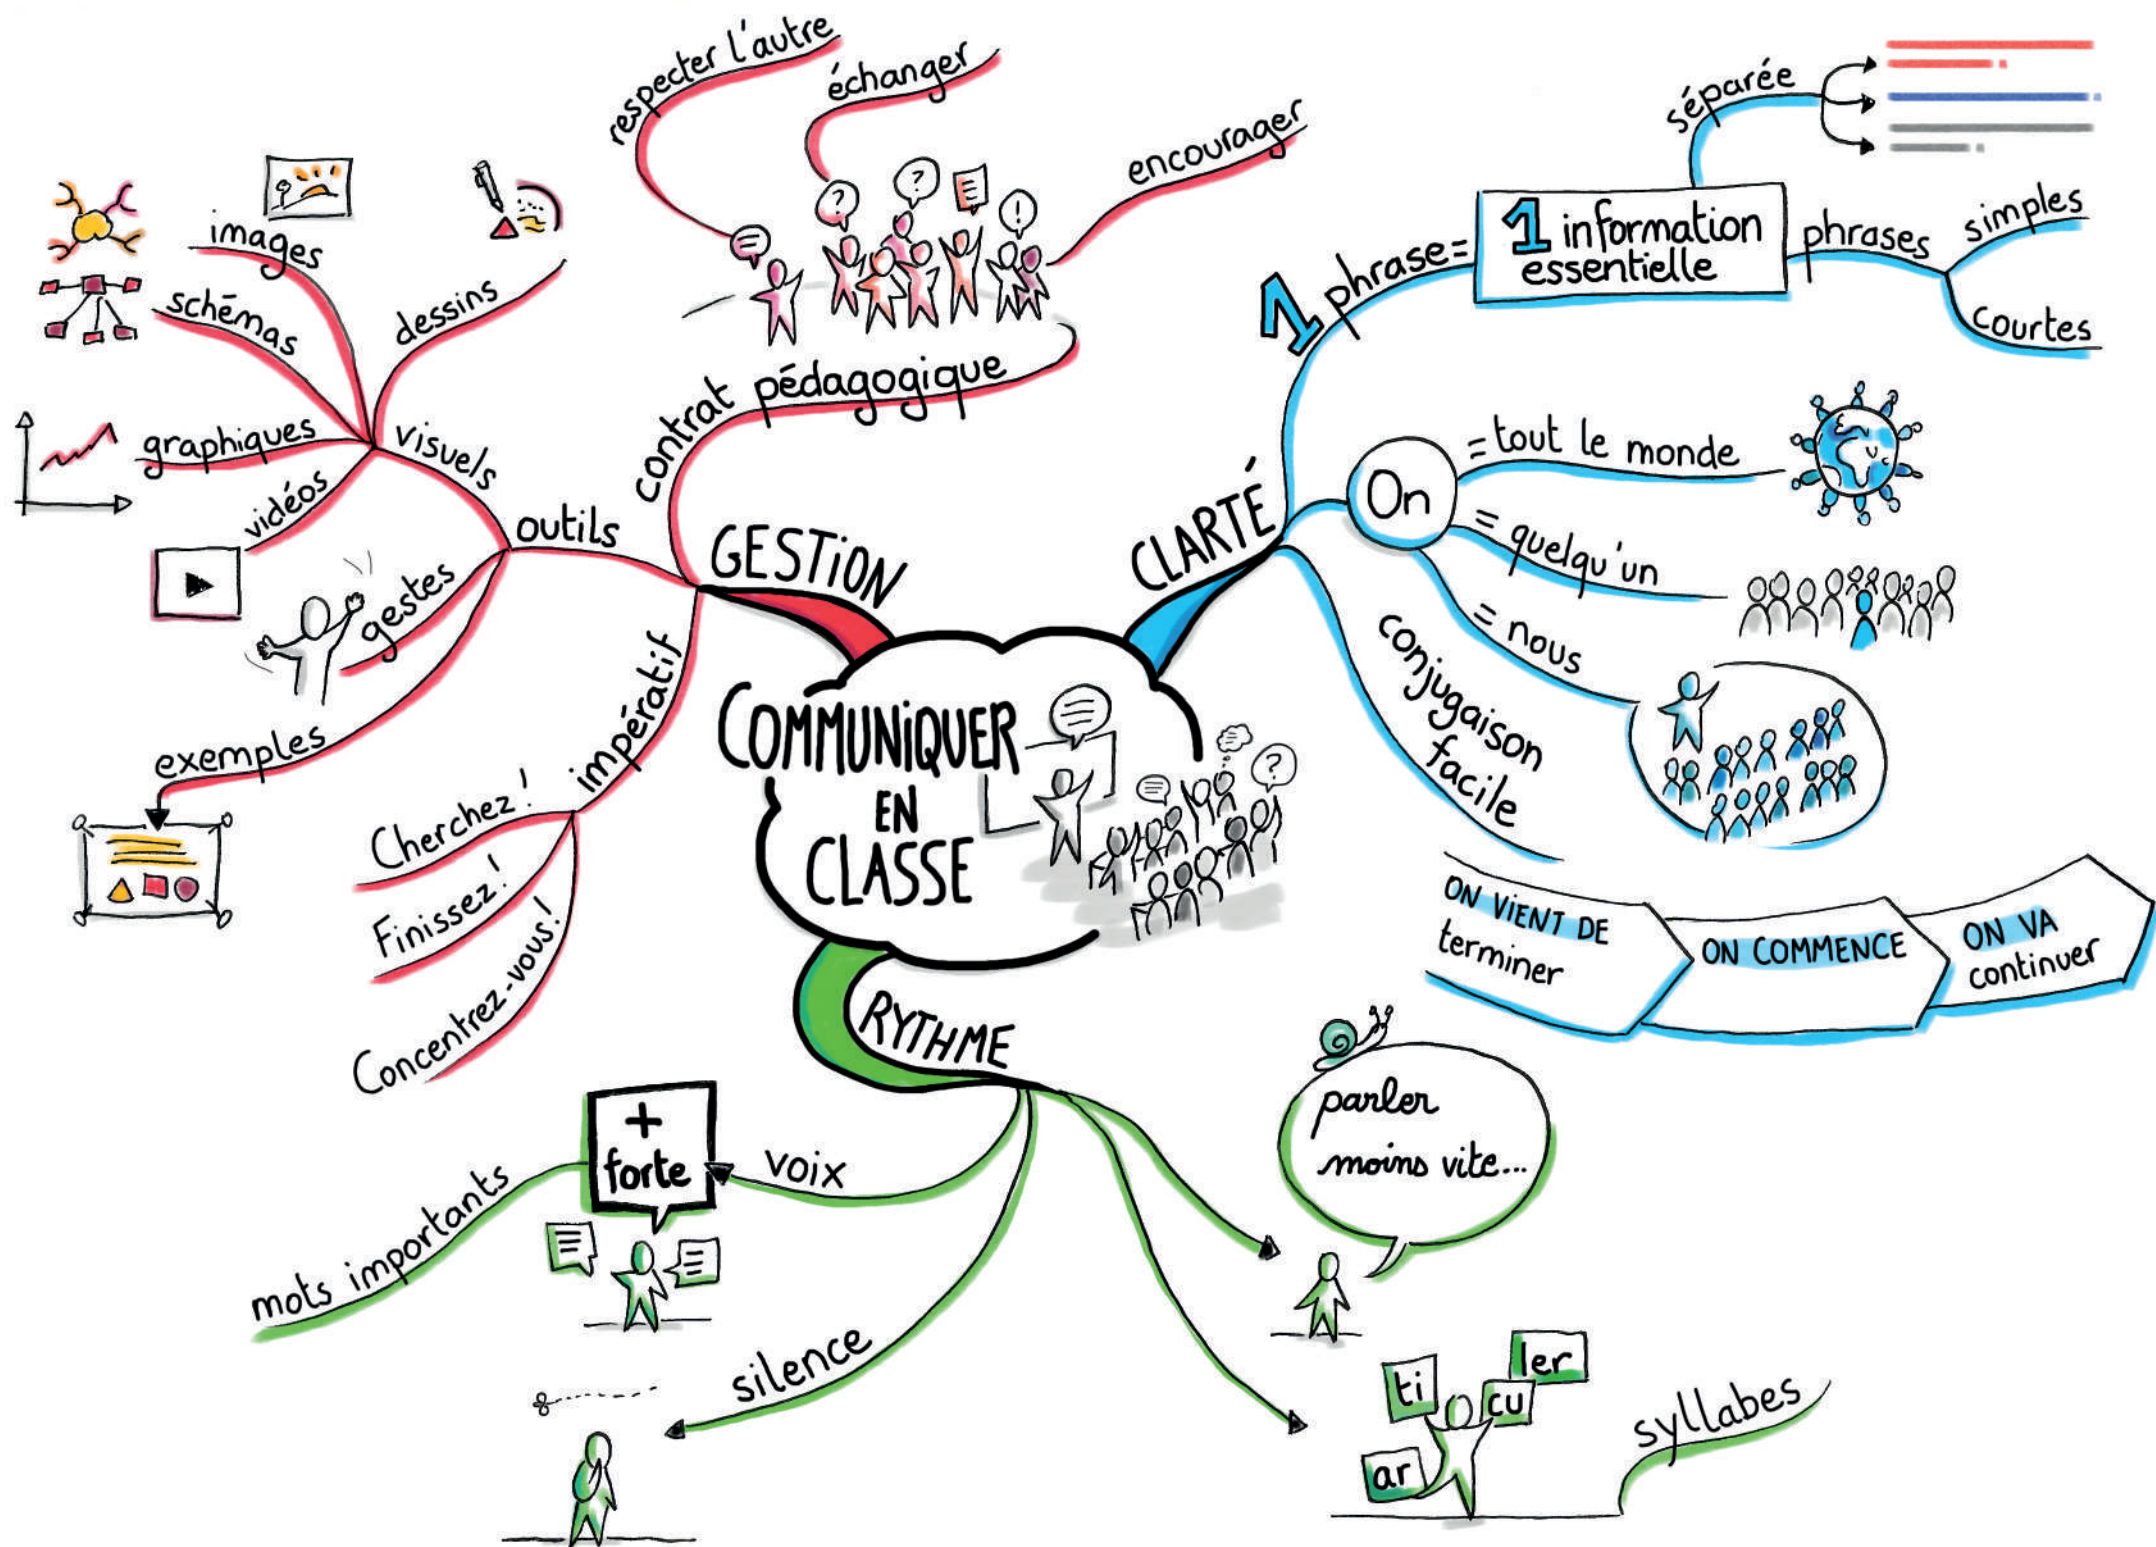 COMMUNIQUER
EN
CLASSE
GESTION
contrat pédagogique
respecter l'autre
échanger
?
?
!
encourager
outils
visuels
images
schémas
dessins
graphiques
vidéos
gestes
exemples
impératif
Cherchez!
Finissez!
Concentrez-vous!
CLARTÉ
1 phrase=
1 information
essentielle
séparée
phrases
simples
courtes
On
= tout le monde
= quelqu'un
= nous
conjugaison
facile
ON VIENT DE
terminer
ON COMMENCE
ON VA
continuer
?
RYTHME
parler
moins vite...
voix
+
forte
mots importants
silence
ar
ti
cu
ler
syllabes